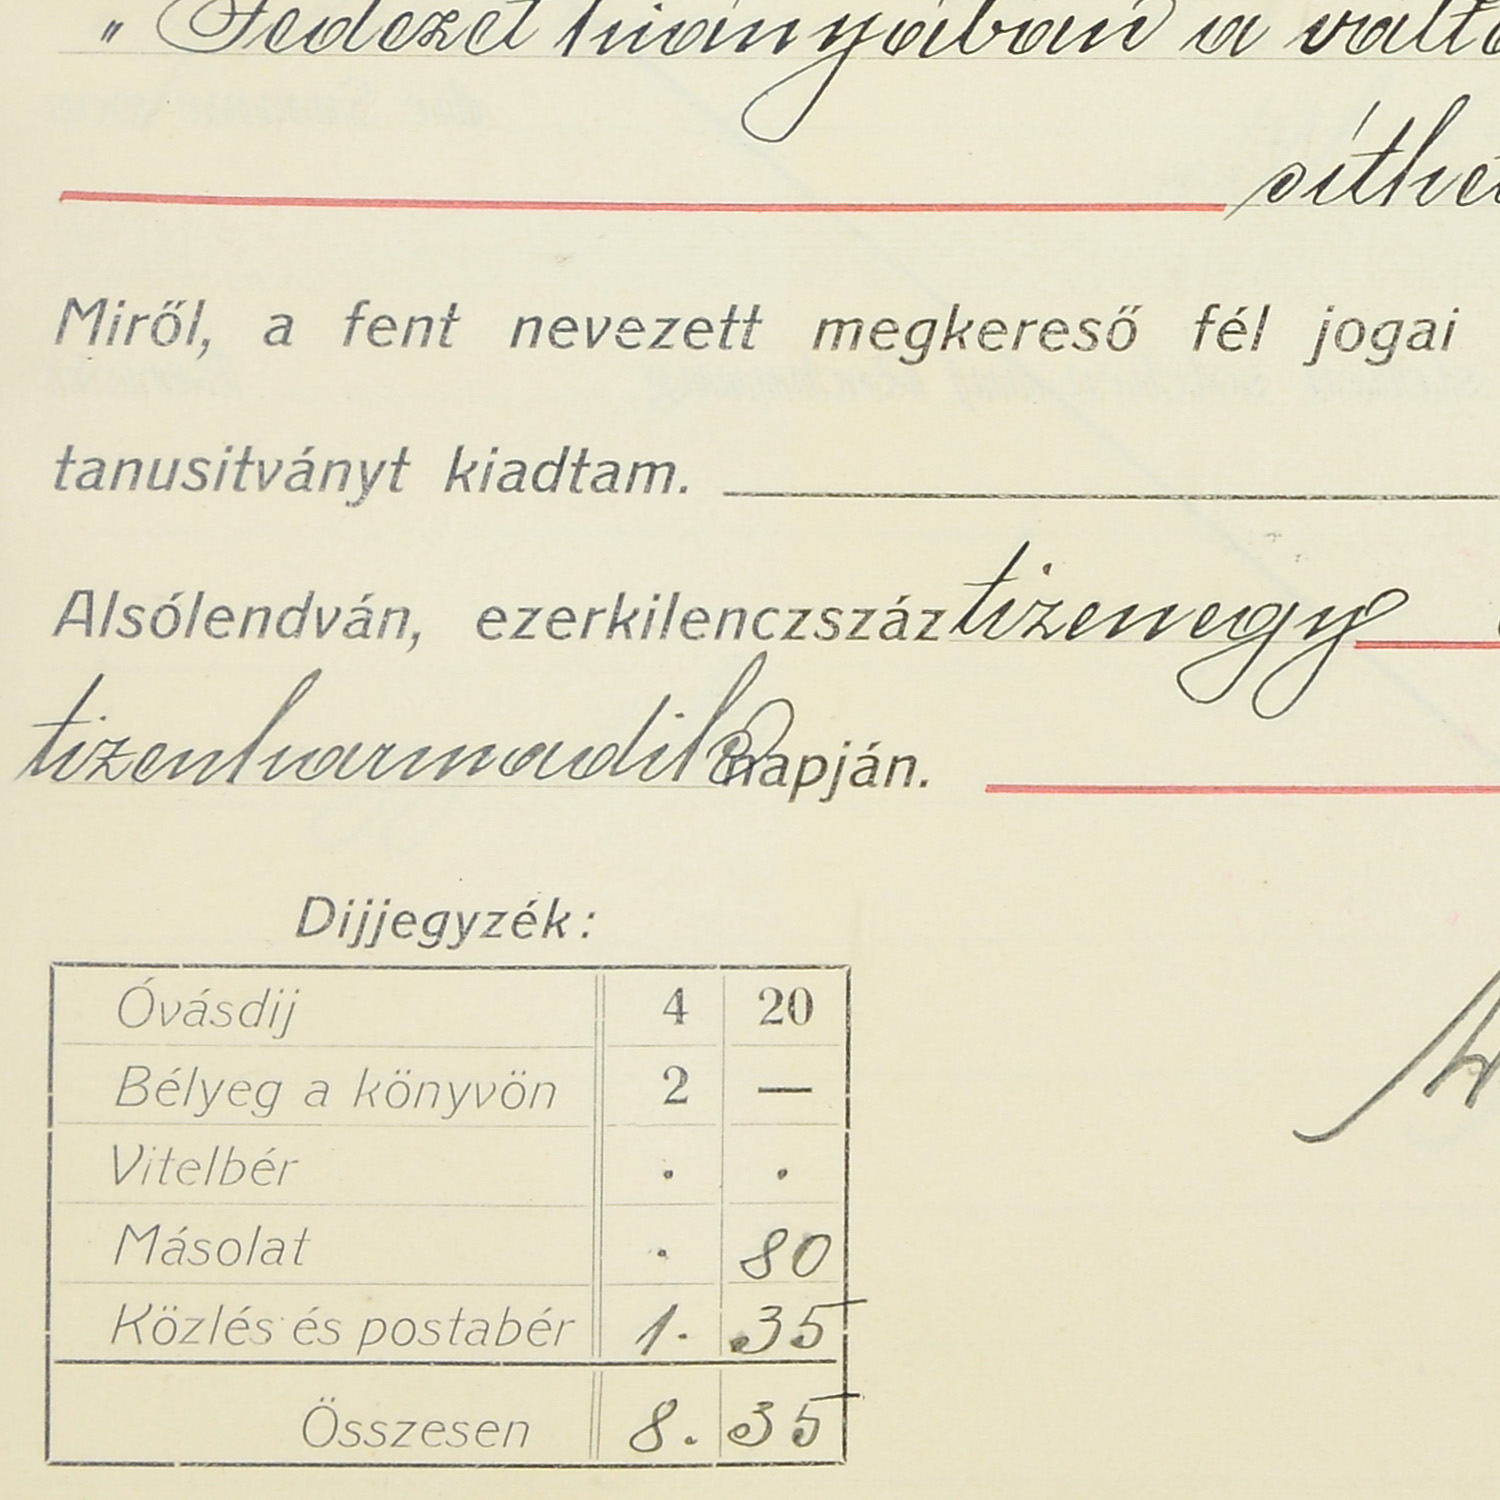 " Fedezet hiányában a váltó
síthet
Miről, a fent nevezett megkereső fél jogai
tanusitványt kiadtam.
Alsólendván, ezerkilenczszáz tizenegy
tizenharmadik napján.
Dijjegyzék:
Óvásdij 4 20
Bélyeg a könyvön 2 —
Vitelbér . .
Másolat . 80
Közlés és postabér 1. 35
Összesen 8. 35